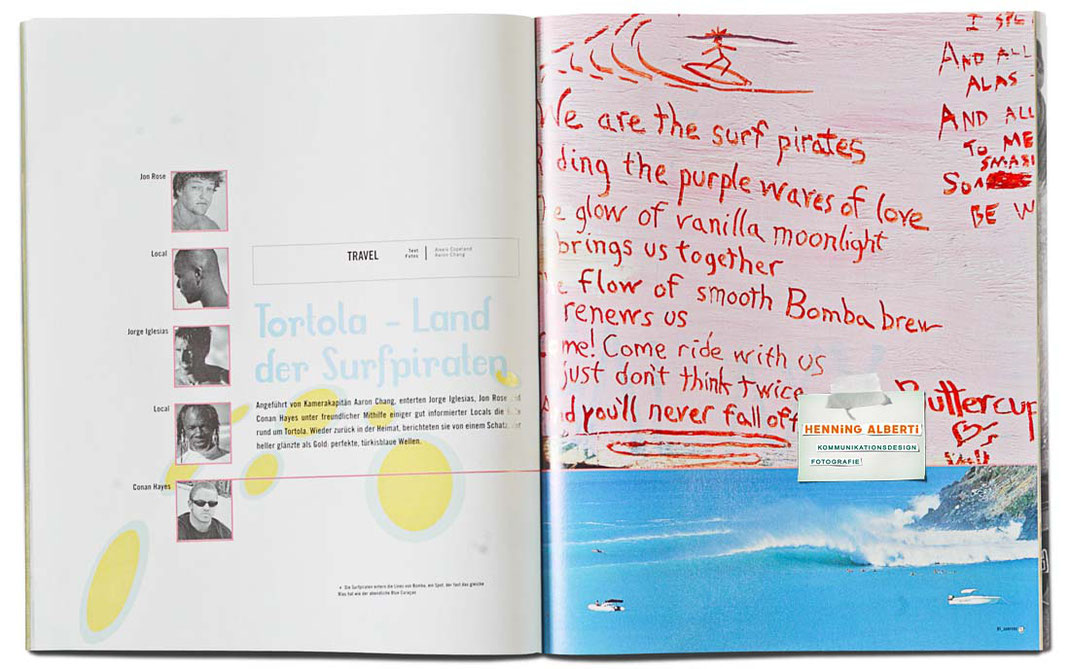 Jon Rose
Local
Jorge Iglesias
Local
Conan Hayes
TRAVEL
Text
Fotos
Aaron Chang
Tortola – Land
der Surfpiraten
Angeführt von Kamerakapitän Aaron Chang, enterten Jorge Iglesias, Jon Rose
Conan Hayes unter freundlicher Mithilfe einiger gut informierter Locals die
rund um Tortola. Wieder zurück in der Heimat, berichteten sie von einem Schatz,
heller glänzte als Gold: perfekte, türkisblaue Wellen.
Die Surfpiraten entern die Lines von Bomba, ein Spot, der fast das gleiche
Blau hat wie der abendliche Blue Curaçao.
We are the surf pirates
ding the purple waves of love
e glow of vanilla moonlight
brings us together
e flow of smooth Bomba brew
renews us
me! Come ride with us
just don't think twice
d you'll never fall off
Buttercup
I SPE
AND ALL
ALAS
AND ALL
TO ME
SMASH
BE W
HENNiNG ALBERTi
KOMMUNIKATIONSDESIGN
FOTOGRAFIE